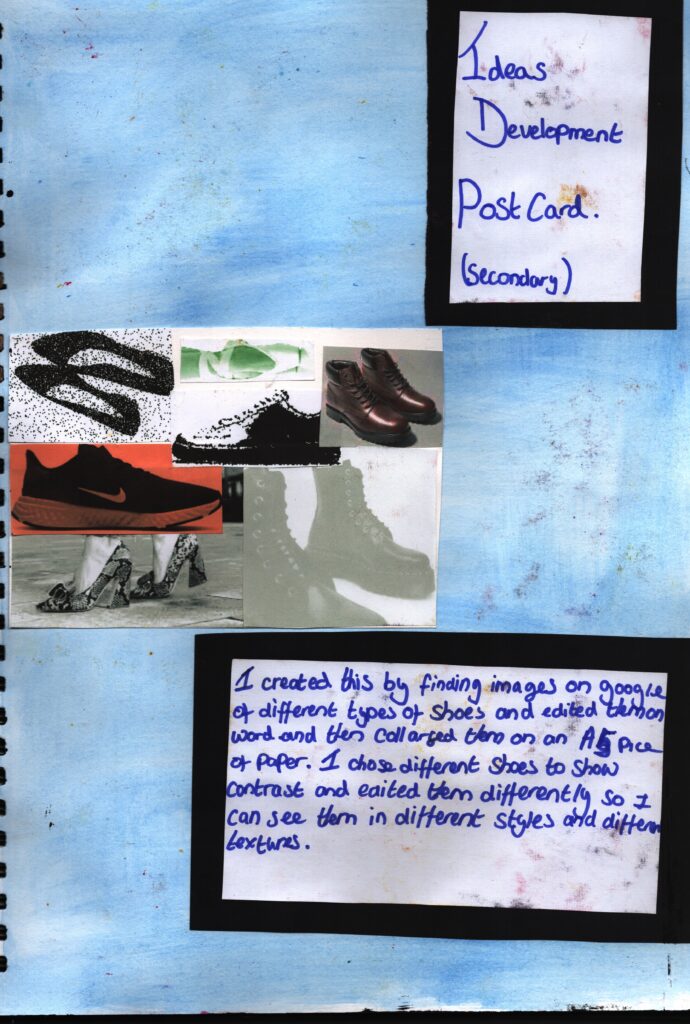 Ideas
Development
Post Card.
(secondary)
I created this by finding images on google
of different types of shoes and edited them on
word and then collarged them on an A5 pice
of paper. I chose different shoes to show
contrast and eaited them differently so I
can see them in different styles and differen
textures.